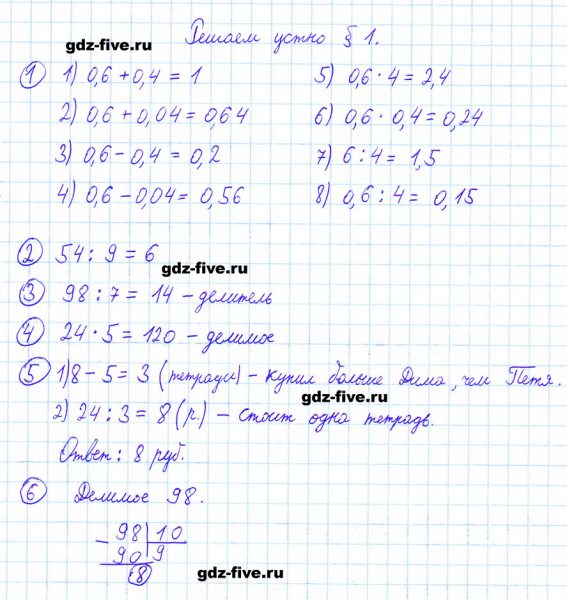 Решаем устно § 1.
gdz-five.ru
1 1) 0,6 + 0,4 = 1
2) 0,6 + 0,04 = 0,64
3) 0,6 - 0,4 = 0,2
4) 0,6 - 0,04 = 0,56
5) 0,6 · 4 = 2,4
6) 0,6 · 0,4 = 0,24
7) 6 : 4 = 1,5
8) 0,6 : 4 = 0,15
2 54 : 9 = 6
gdz-five.ru
3 98 : 7 = 14 - делитель
4 24 · 5 = 120 - делимое
5 1) 8 - 5 = 3 (тетради) - купил больше Дима, чем Петя.
gdz-five.ru
2) 24 : 3 = 8 (р.) - стоит одна тетрадь.
Ответ: 8 руб.
6 Делимое 98.
- 98 | 10
90 9
8
gdz-five.ru